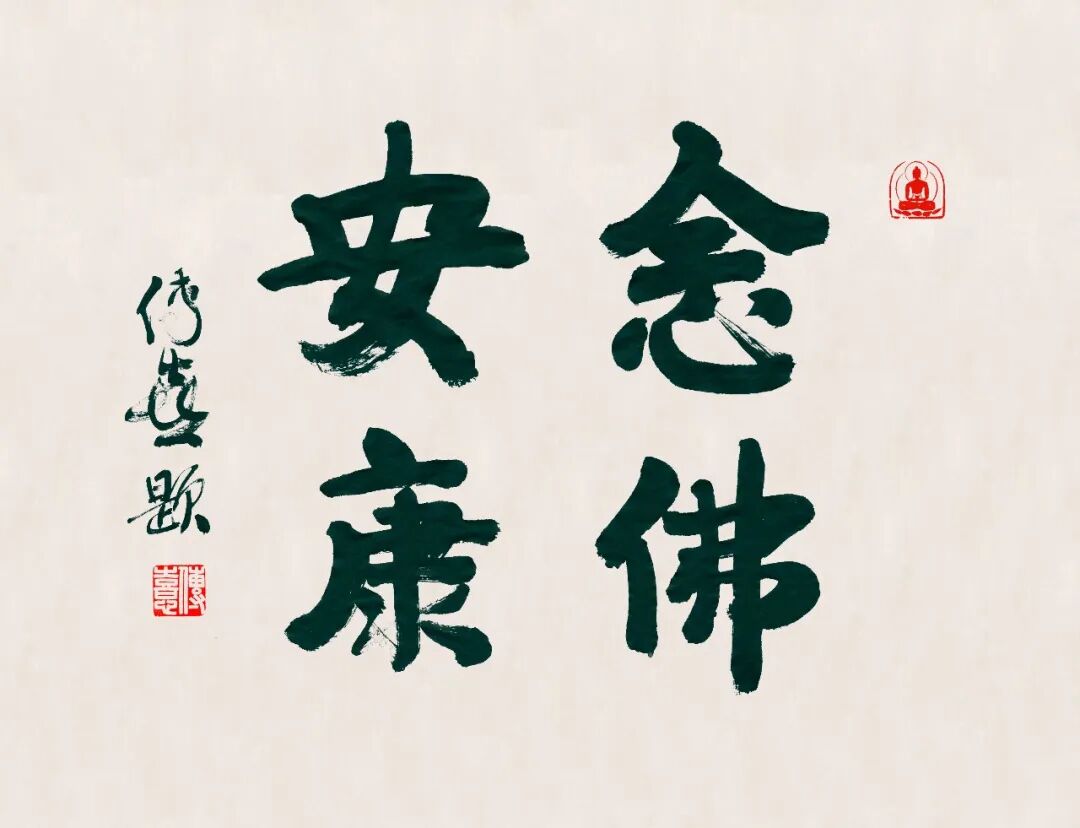 念佛
安康
传喜题
傳喜